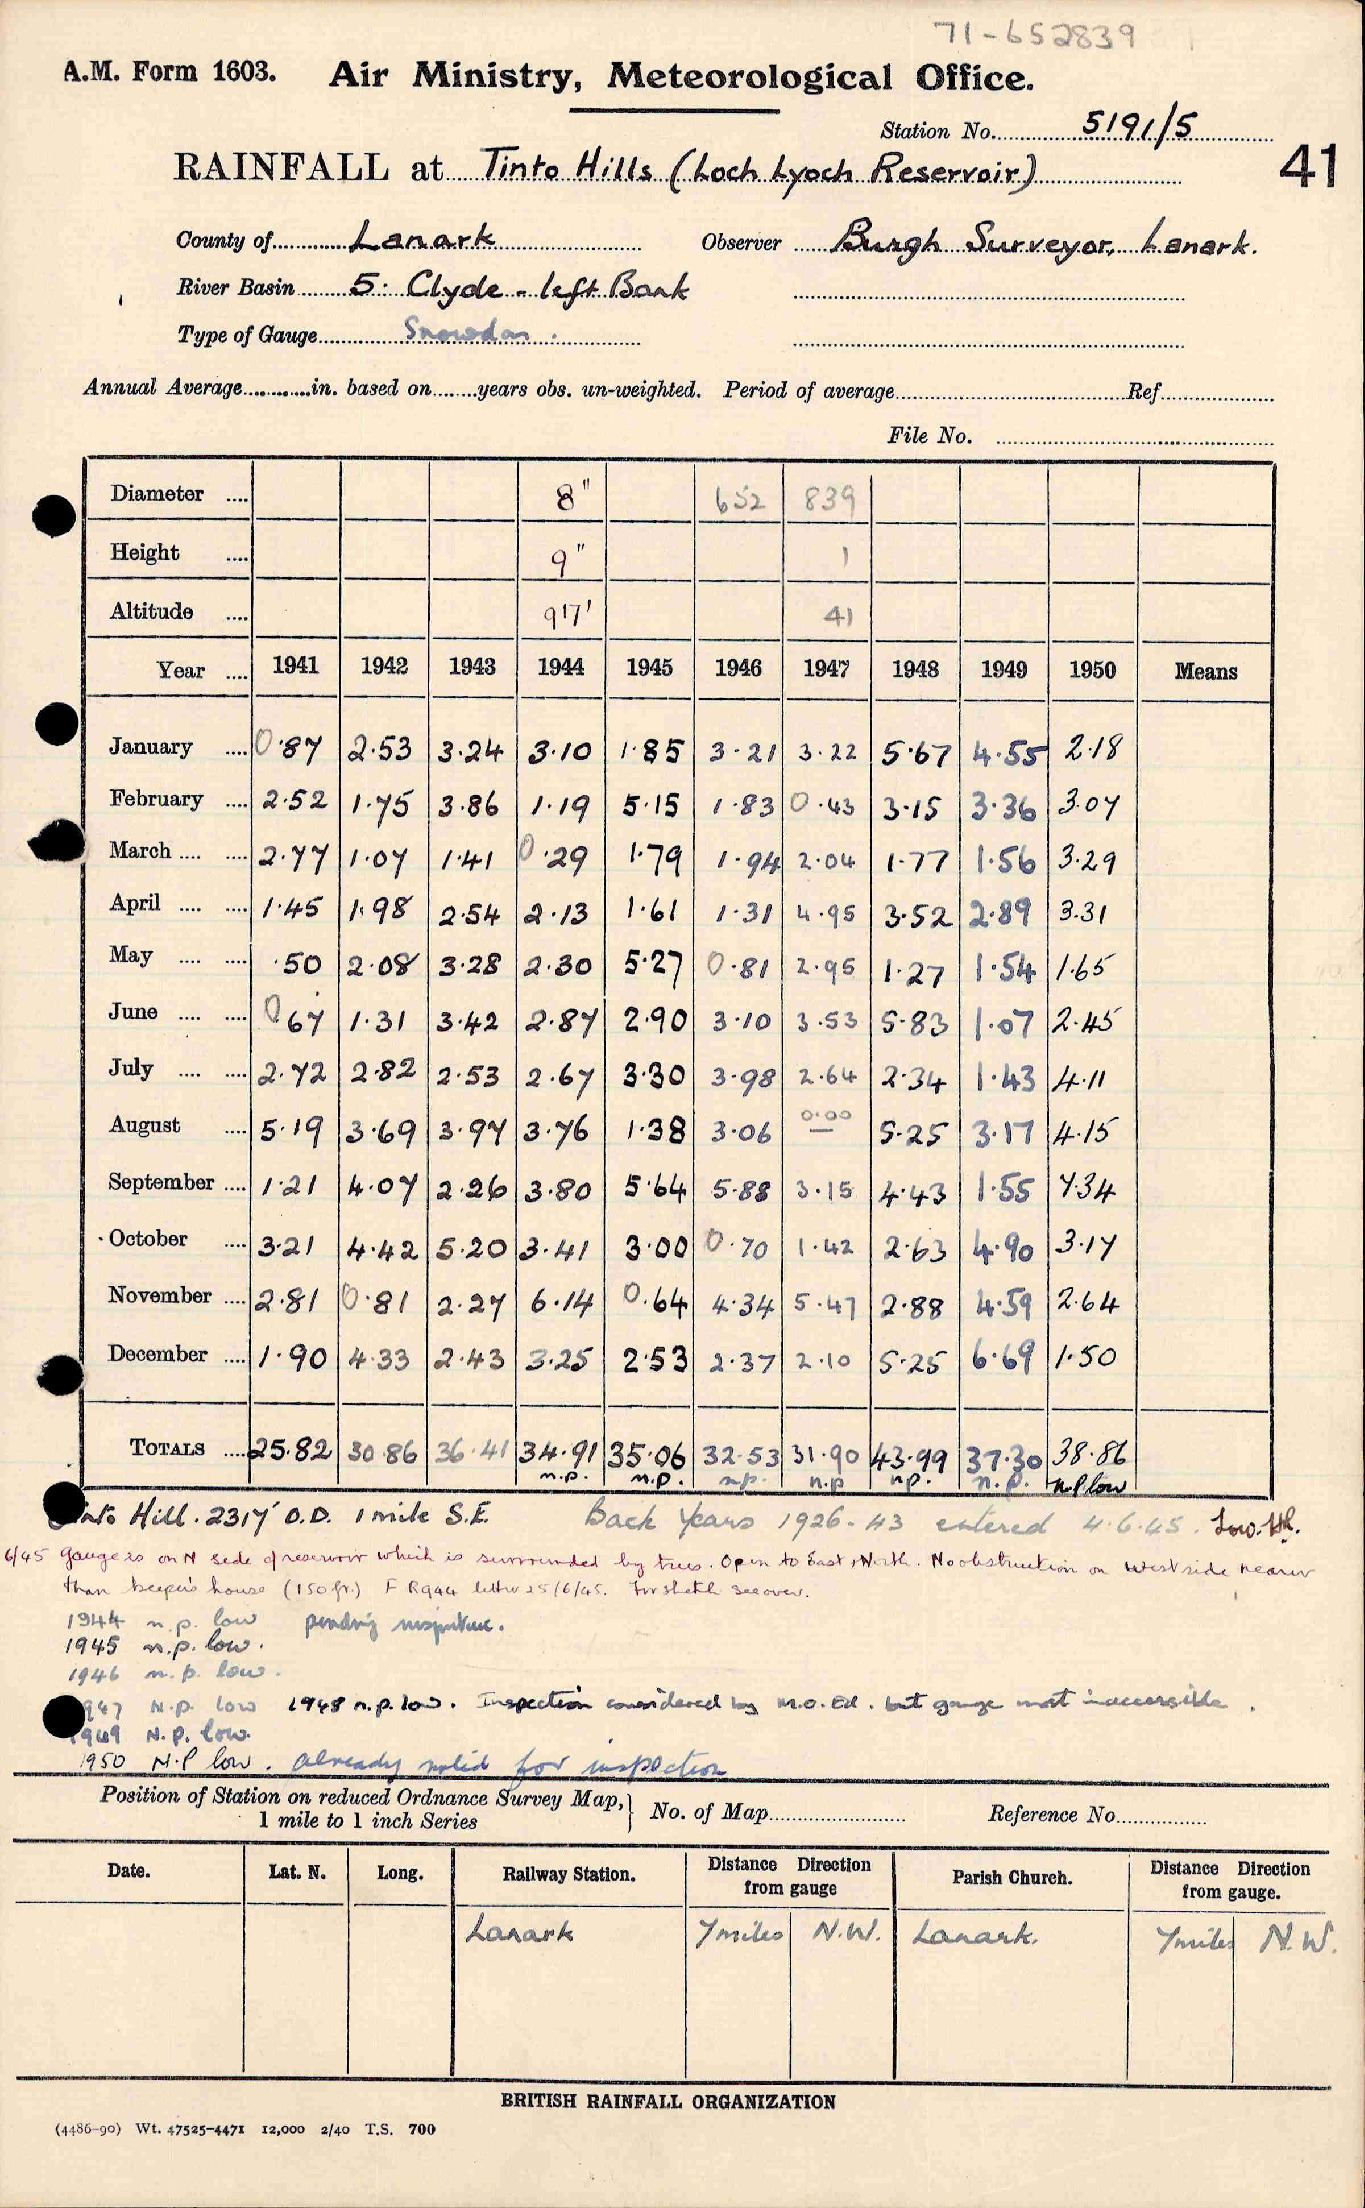 71-652839
A.M. Form 1603. Air Ministry, Meteorological Office.
Station No. 5191/5
41
RAINFALL at Tinto Hills (Loch Lyoch Reservoir)
County of Lanark Observer Burgh Surveyor, Lanark.
River Basin 5. Clyde - left Bank
Type of Gauge Snowdon.
Annual Average in. based on years obs. un-weighted. Period of average Ref
File No.
Diameter 8" 652 839
Height 9" 1
Altitude 917' 41
Year 1941 1942 1943 1944 1945 1946 1947 1948 1949 1950 Means
January 0.87 2.53 3.24 3.10 1.85 3.21 3.22 5.67 4.55 2.18
February 2.52 1.75 3.86 1.19 5.15 1.83 0.43 3.15 3.36 3.07
March 2.77 1.07 1.41 0.29 1.79 1.94 2.04 1.77 1.56 3.29
April 1.45 1.98 2.54 2.13 1.61 1.31 4.95 3.52 2.89 3.31
May .50 2.08 3.28 2.30 5.27 0.81 2.95 1.27 1.54 1.65
June 0.67 1.31 3.42 2.87 2.90 3.10 3.53 5.83 1.07 2.45
July 2.72 2.82 2.53 2.67 3.30 3.98 2.64 2.34 1.43 4.11
August 5.19 3.69 3.97 3.76 1.38 3.06 0.00 — 5.25 3.17 4.15
September 1.21 4.07 2.26 3.80 5.64 5.88 3.15 4.43 1.55 7.34
October 3.21 4.42 5.20 3.41 3.00 0.70 1.42 2.63 4.90 3.17
November 2.81 0.81 2.27 6.14 0.64 4.34 5.47 2.88 4.59 2.64
December 1.90 4.33 2.43 3.25 2.53 2.37 2.10 5.25 6.69 1.50
TOTALS 25.82 30.86 36.41 34.91 35.06 32.53 31.90 43.99 37.30 38.86
n.p. n.p. n.p. n.p n.p. n.p. n.p low
Tinto Hill. 2317' O.D. 1 mile S.E. Back Years 1926-43 entered 4.6.45. Low.
6/45 Gauge is on N side of reservoir which is surrounded by trees. Open to East & North. No obstruction on west side nearer
than keeper's house (150 ft.) F R944 letter 25/6/45. For sketch see over.
1944 n.p. low pending inspection.
1945 n.p. low.
1946 n.p. low.
1947 N.p. low 1948 n.p. low. Inspection considered by M.O. Ed. but gauge most inaccessible.
1949 N.P. low.
1950 N.P low. already noted for inspection
Position of Station on reduced Ordnance Survey Map, No. of Map Reference No.
1 mile to 1 inch Series
Date. Lat. N. Long. Railway Station. Distance Direction from gauge Parish Church. Distance Direction from gauge.
Lanark 7 miles N.W. Lanark. 7 miles N.W.
BRITISH RAINFALL ORGANIZATION
(4486-90) Wt. 47525-4471 12,000 2/40 T.S. 700